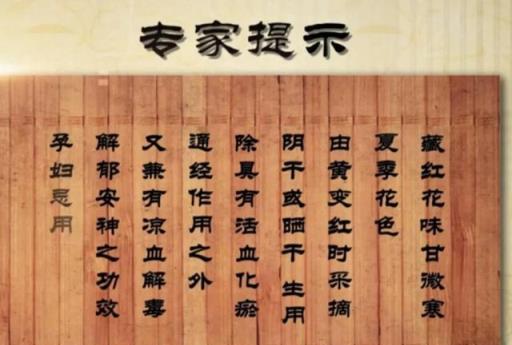 专家提示
藏红花味甘微寒
夏季花色
由黄变红时采摘
阴干或晒干生用
除具有活血化瘀
通经作用之外
又兼有凉血解毒
解郁安神之功效
孕妇忌用